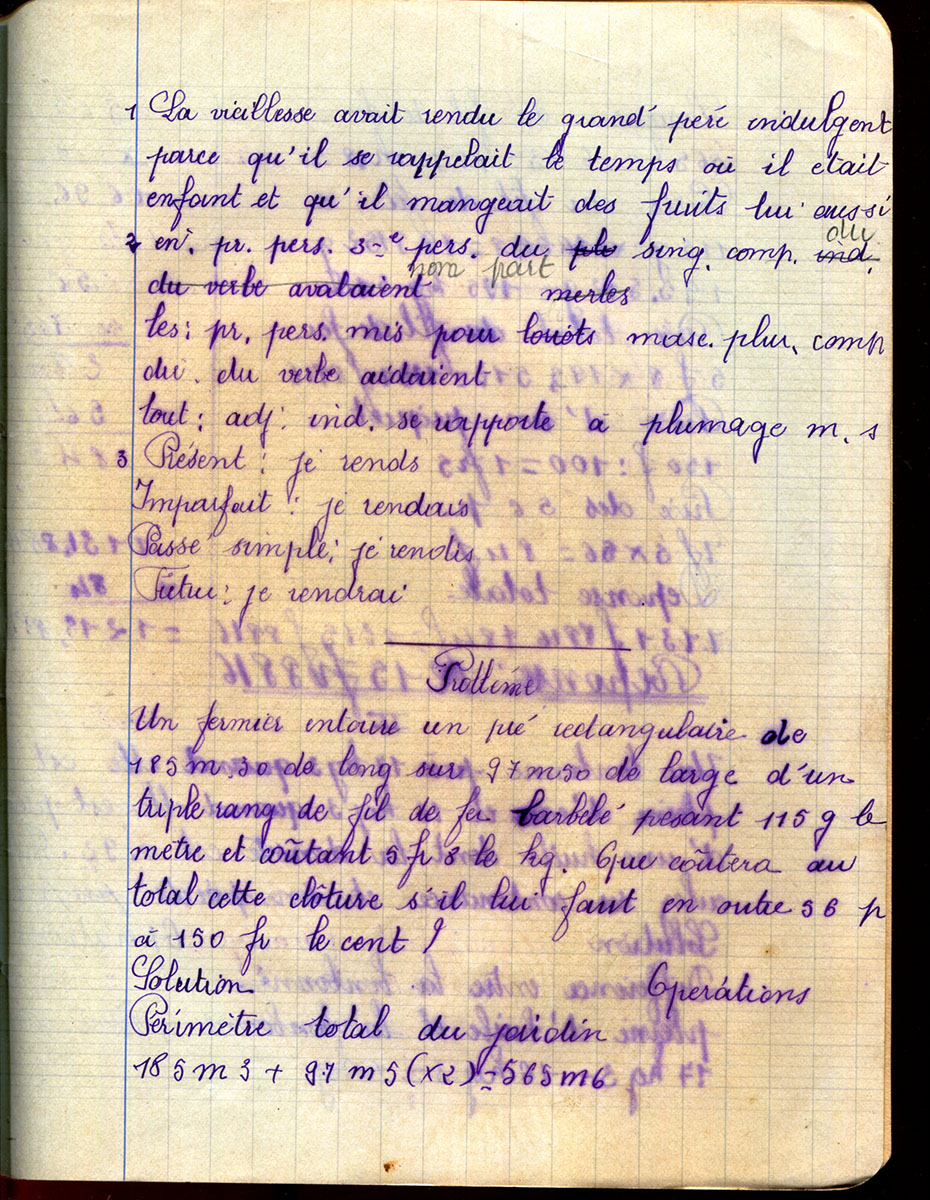 1 La vieillesse avait rendu le grand père indulgent
parce qu'il se rappelait le temps où il etait
enfant et qu'il mangeait des fruits lui aussi
2 en. pr. pers. 3e pers. du plu sing. comp. ind. du
du verbe avalaient nom part merles
les : pr. pers. mis pour louets masc. plur. comp
dir. du verbe aidaient
tout : adj. ind. se rapporte à plumage m. s
3 Présent : je rends
Imparfait : je rendais
Passé simple : je rendis
Futur : je rendrai
Problème
Un fermier entoure un pré rectangulaire de
185m.30 de long sur 97m50 de large d'un
triple rang de fil de fer barbélé pesant 115g le
mètre et coûtant 5 fr 8 le kg. Que coûtera au
total cette clôture s'il lui faut en outre 56 p
à 150 fr le cent ?
Solution Opérations
Périmètre total du jardin
185m3 + 97m5(x2) = 565m6